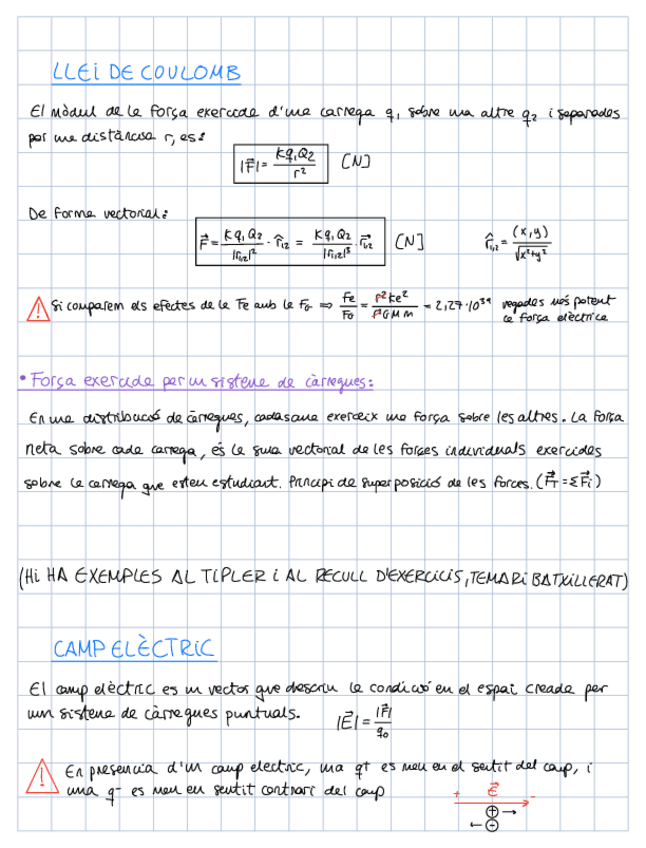 LLEI DE COULOMB
El mòdul de la força exercida d'una carrega q₁ sobre una altre q₂ i separades
per una distància r, es:
|F⃗| = K q₁ Q₂ / r² [N]
De forma vectorial:
F⃗ = K q₁ Q₂ / |r₁,₂|² · r̂₁₂ = K q₁ Q₂ / |r₁,₂|³ · r⃗₁,₂ [N] r̂₁,₂ = (x,y) / √x²+y²
⚠ Si comparem els efectes de la Fe amb la FG ⇒ Fe / FG = r² k e² / r² G M m = 2,27·10³⁹ vegades més potent
la força elèctrica
• Força exercida per un sistema de càrregues:
En una distribució de càrregues, cadascuna exerceix una força sobre les altres. La força
neta sobre cada carrega, és la suma vectorial de les forces individuals exercides
sobre la carrega que estem estudiant. Principi de superposició de les forces. (F⃗T = Σ F⃗i)
(Hi HA EXEMPLES AL TIPLER i AL RECULL D'EXERCICIS, TEMARI BATXILLERAT)
CAMP ELÈCTRIC
El camp elèctric es un vector que descriu la condició en el espai creada per
un sistema de càrregues puntuals. |E⃗| = |F⃗| / q₀
⚠ En presencia d'un camp electric, una q⁺ es mou en el sentit del camp, i
una q⁻ es mou en sentit contrari del camp
+ E⃗ -
⊕ →
← ⊖